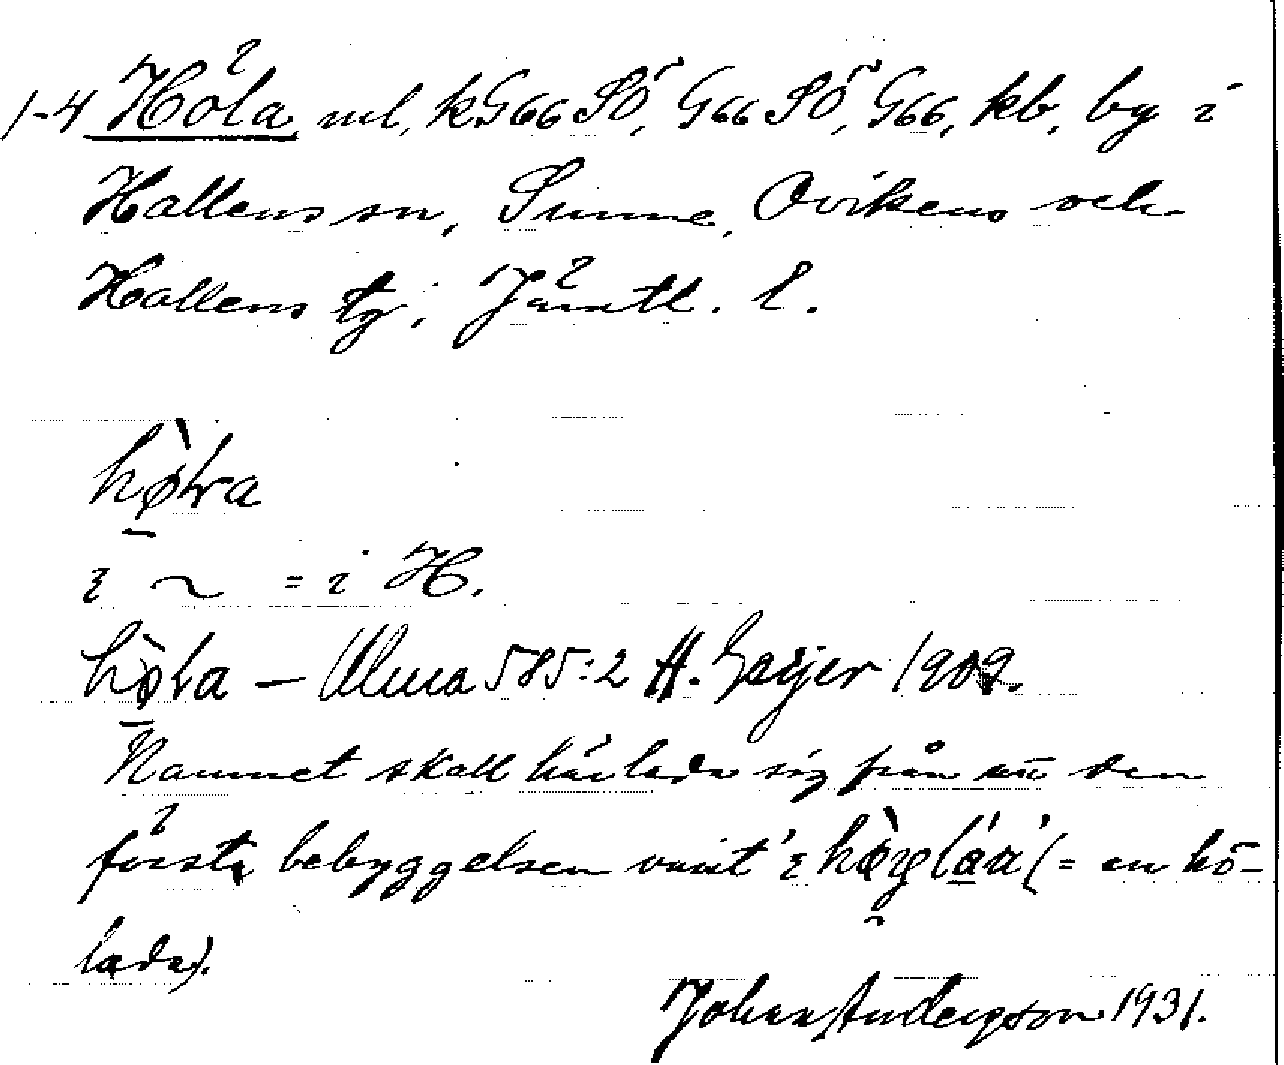 1-4 Höla ml, k. G66 SÖ, G66 SÖ, G66, kb, by i
Hallens sn, Sunne, Ovikens och
Hallens tg, Jämtl. l.
hø̀la
i ~ = i H.
hø̀la – Ulma 585:2 H. Geijer 1909.
Namnet skall härleda sig från att den
första bebyggelsen varit '(= en hö-
lada).
Johan Anderson 1931.